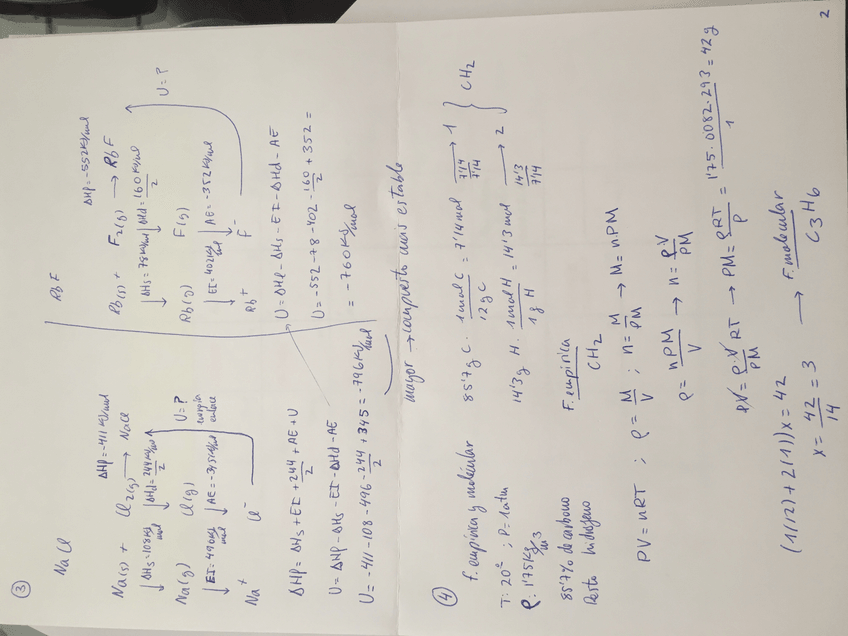 ③
NaCl
ΔHp=-411 KJ/mol
Na(s) + Cl2(g) → NaCl
↓ ΔHs=108 KJ/mol ↓ ΔHd=244 KJ/mol / 2
Na(g) Cl(g) U=?
↓ EI=496 KJ/mol ↓ AE=-345 KJ/mol energía
Na+ Cl-
ΔHp = ΔHs + EI + 244/2 + AE + U
U = ΔHp - ΔHs - EI - ΔHd - AE
U = -411-108-496-244/2+345=-796 KJ/mol
RbF
ΔHp=-552 KJ/mol
Rb(s) + F2(g) → RbF
↓ ΔHs=78 KJ/mol ↓ ΔHd=160 KJ/mol / 2
Rb(g) F(g) U=?
↓ EI=402 KJ/mol ↓ AE=-352 KJ/mol
Rb+ F-
U = ΔHp - ΔHs - EI - ΔHd - AE
U = -552-78-402-160/2+352=
= -760 KJ/mol
mayor → compuesto más estable
④
f. empírica y molécular
T: 20º ; P=1atm
ρ: 1'75 Kg/m3
85'7% de carbono
Resto hidrógeno
85'7 g C. 1 mol C / 12 g C = 7'14 mol 7'14/7'14 → 1
14'3 g H. 1 mol H / 1 g H = 14'3 mol 14'3/7'14 → 2
} CH2
F. empírica
CH2
PV = nRT ; ρ = M/V ; n = M/PM → M = nPM
ρ = nPM/V → n = ρ·V/PM
PV = ρ·V/PM RT → PM = ρRT/P = 1'75·0082·293/1 = 42g
(1(12)+2(1))x = 42
x = 42/14 = 3 → F. molecular
C3H6
2